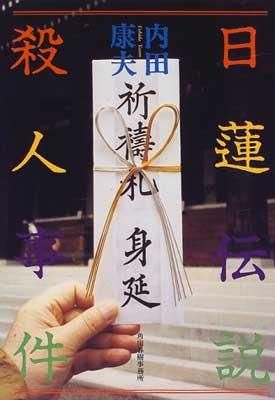 日蓮伝説
殺人事件
内田
康夫
Uchida Yasuo
祈祷札 身延
角川春樹事務所